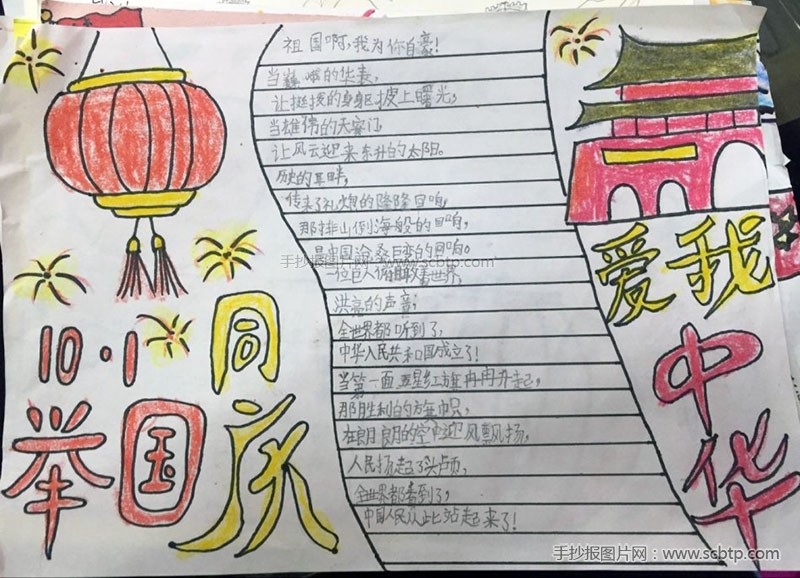 10·1
举国同庆
祖国啊,我为你自豪!
当巍峨的华表,
让挺拔的身躯披上曙光,
当雄伟的天安门,
让风云迎来东升的太阳。
历史的耳畔,
传来了礼炮的隆隆回响,
那排山倒海般的回响,
是中国沧桑巨变的回响。
一位巨人俯瞰着世界,
洪亮的声音,
全世界都听到了,
中华人民共和国成立了!
当第一面五星红旗冉冉升起,
那胜利的旗帜,
在朗朗的空中迎风飘扬,
人民扬起了头颅,
全世界都看到了,
中国人民从此站起来了!
爱我
中华
手抄报图片网：www.scbtp.com
手抄报图片网：www.scbtp.com